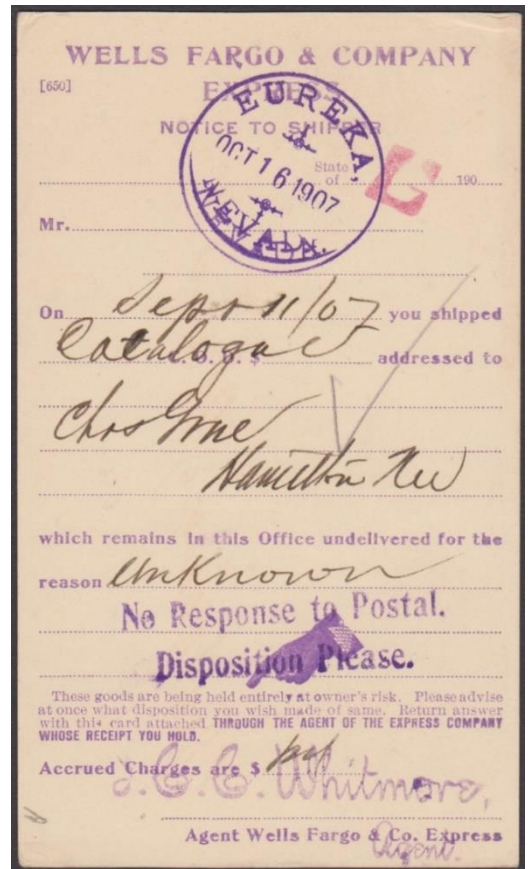 WELLS FARGO & COMPANY
[650] EXPRESS
NOTICE TO SHIPPER
EUREKA,
OCT 16 1907
NEVADA.
State
of 190
Mr.
On Sept 11/07 you shipped
Catalogue C.O.D. $ addressed to
Chas
Hamilton Nev
which remains in this Office undelivered for the
reason Unknown
No Response to Postal.
Disposition Please.
These goods are being held entirely at owner's risk. Please advise
at once what disposition you wish made of same. Return answer
with this card attached THROUGH THE AGENT OF THE EXPRESS COMPANY
WHOSE RECEIPT YOU HOLD.
Accrued Charges are $
J. C. C. Whitmore,
Agent Wells Fargo & Co. Express
Agent.